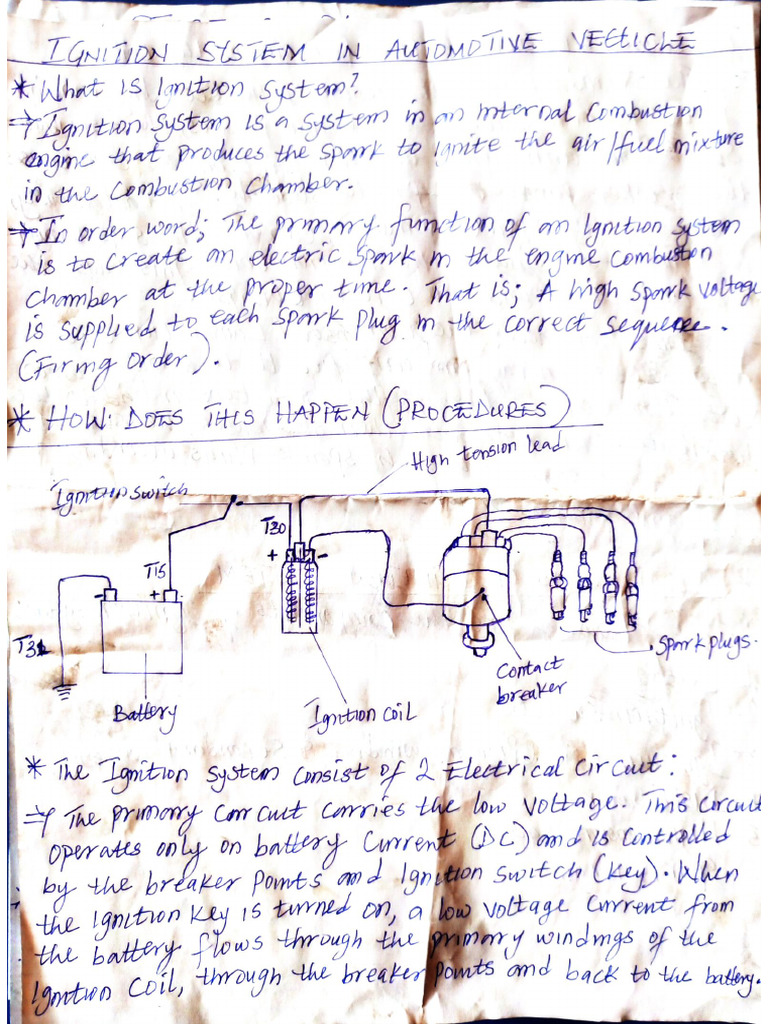 IGNITION SYSTEM IN AUTOMOTIVE VEHICLE
* What is Ignition System?
⇒ Ignition System is a system in an internal Combustion
engine that produces the spark to ignite the air/fuel mixture
in the Combustion Chamber.
⇒ In order word; The primary function of an Ignition System
is to create an electric spark in the engine combustion
chamber at the proper time. That is; A high spark voltage
is supplied to each spark plug in the correct sequence.
(Firing order).
* HOW DOES THIS HAPPEN (PROCEDURES)
High tension lead
Ignition switch
T30
+ -
T15
- +
T31
Spark plugs.
Contact
breaker
Battery
Ignition coil
* The Ignition System consist of 2 Electrical Circuit:
⇒ The primary Carcuit carries the low voltage. This circuit
operates only on battery Current (DC) and is controlled
by the breaker points and ignition switch (key). When
the ignition key is turned on, a low voltage current from
the battery flows through the primary windings of the
Ignition coil, through the breaker points and back to the battery.